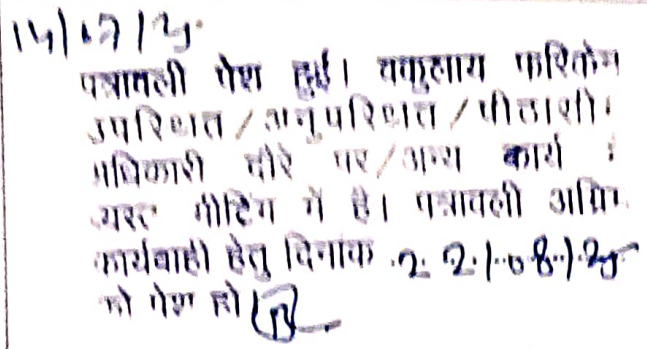 14/07/25
पत्रावली पेश हुई। वकुलाय फरिकेन
उपस्थित/अनुपस्थित/पीठाशी
अधिकारी दौरे पर/अन्य कार्य
व्यस्त मीटिंग में है। पत्रावली अग्रिम
कार्यवाही हेतु दिनांक 22/08/25
को पेश हो